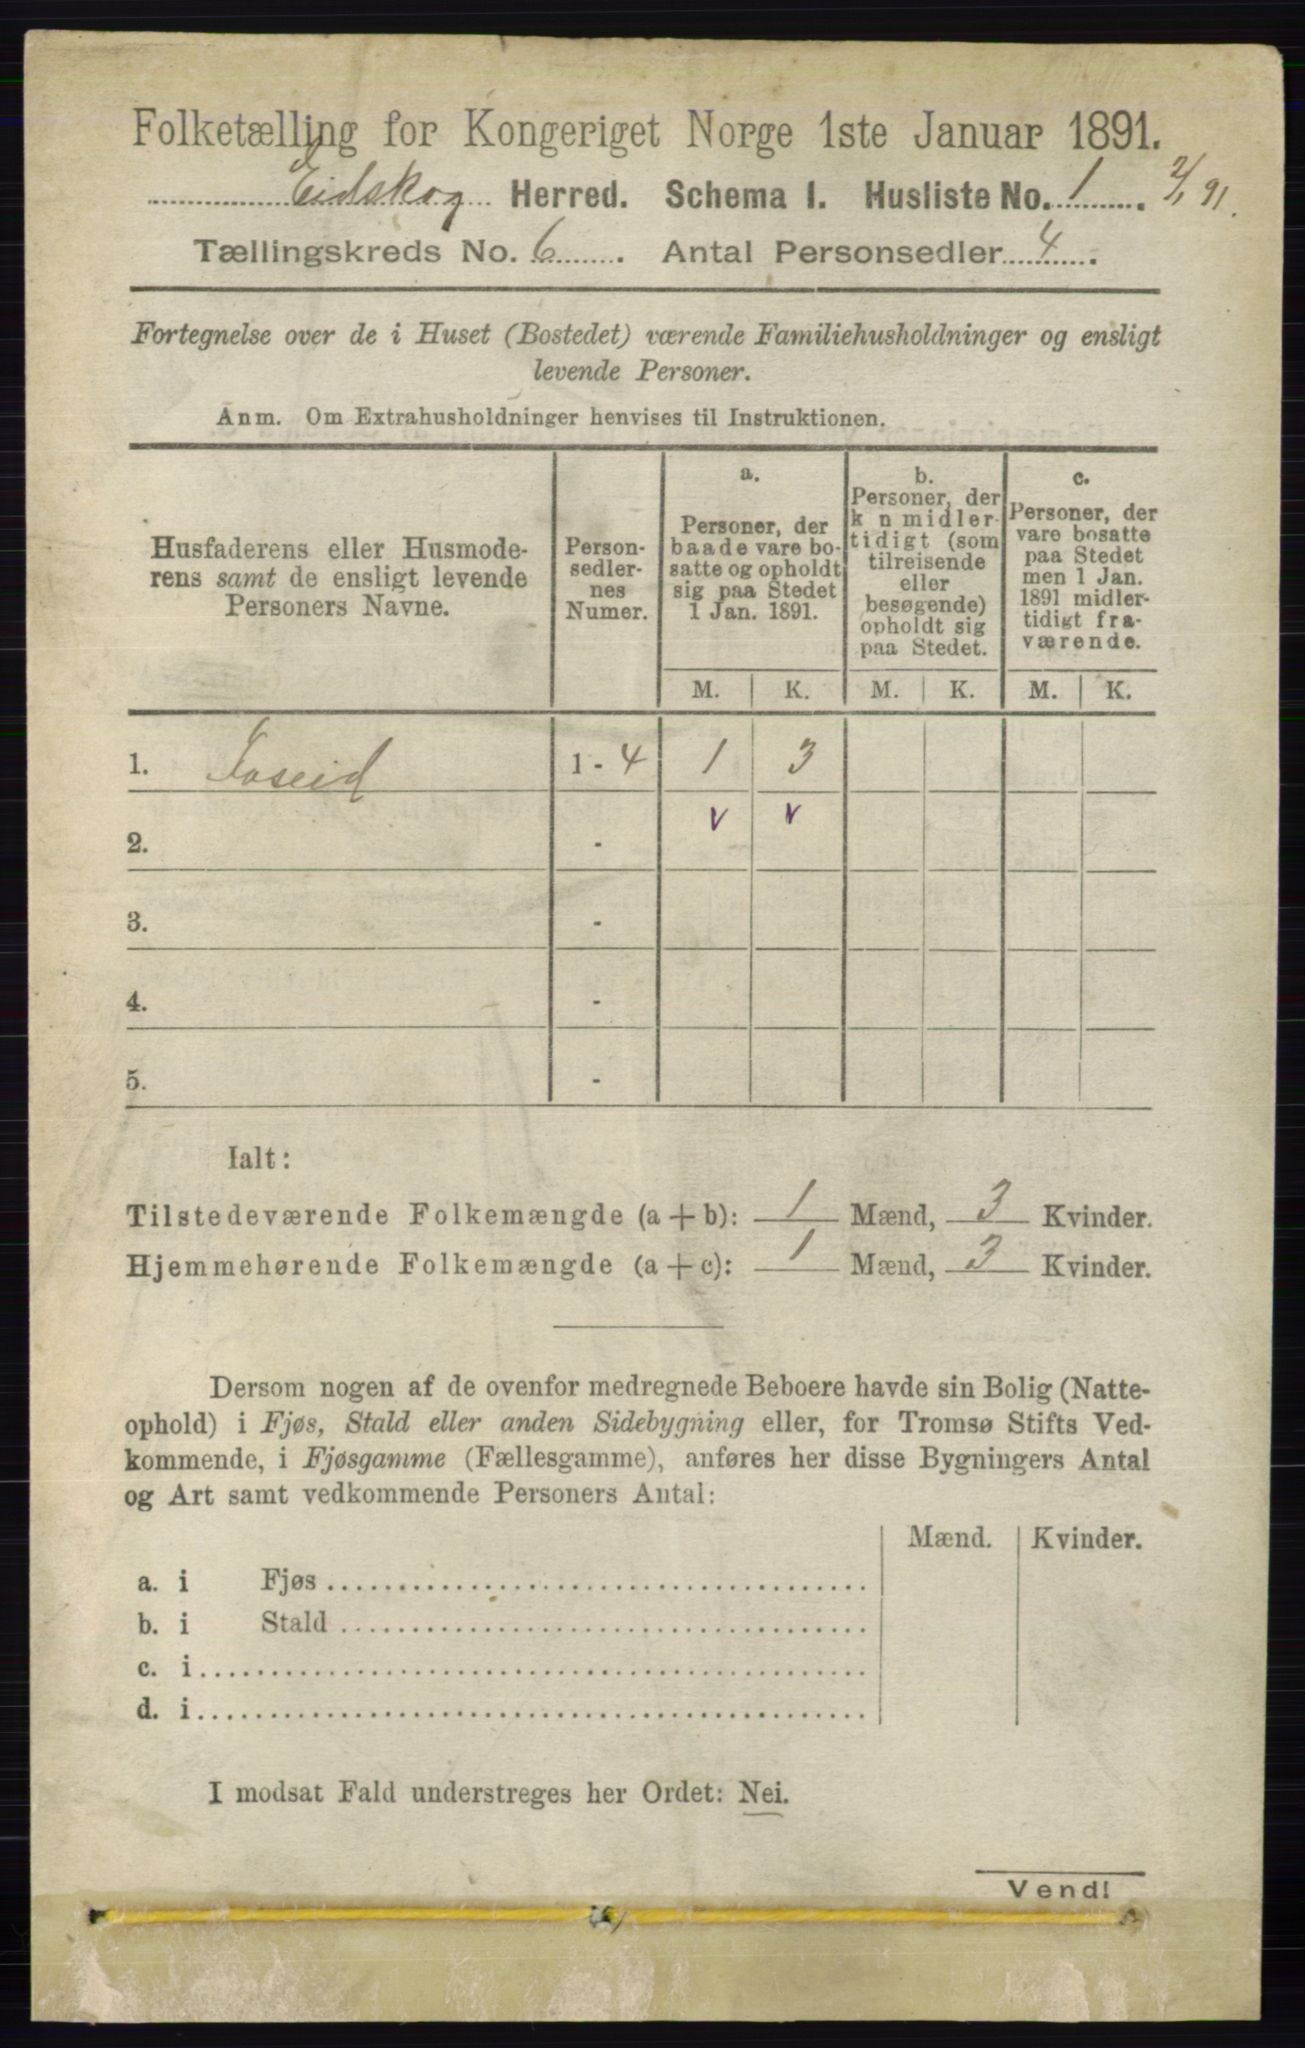 Folketælling for Kongeriget Norge 1ste Januar 1891.
Eidskog Herred. Schema I. Husliste No. 1. 2/1 91.
Tællingskreds No. 6. Antal Personsedler 4.
Fortegnelse over de i Huset (Bostedet) værende Familiehusholdninger og ensligt
levende Personer.
Anm. Om Extrahusholdninger henvises til Instruktionen.
Husfaderens eller Husmode-
rens samt de ensligt levende
Personers Navne.
Person-
sedler-
nes
Numer.
a.
Personer, der
baade vare bo-
satte og opholdt
sig paa Stedet
1 Jan. 1891.
b.
Personer, der
k n midler-
tidigt (som
tilreisende
eller
besøgende)
opholdt sig
paa Stedet.
c.
Personer, der
vare bosatte
paa Stedet
men 1 Jan.
1891 midler-
tidigt fra-
værende.
M. K. M. K. M. K.
1. 1 - 4 1 3
2. - v v
3. -
4. -
5. -
Ialt:
Tilstedeværende Folkemængde (a + b): 1 Mænd, 3 Kvinder.
Hjemmehørende Folkemængde (a + c): 1 Mænd, 3 Kvinder.
Dersom nogen af de ovenfor medregnede Beboere havde sin Bolig (Natte-
ophold) i Fjøs, Stald eller anden Sidebygning eller, for Tromsø Stifts Ved-
kommende, i Fjøsgamme (Fællesgamme), anføres her disse Bygningers Antal
og Art samt vedkommende Personers Antal:
Mænd. Kvinder.
a. i Fjøs
b. i Stald
c. i
d. i
I modsat Fald understreges her Ordet: Nei.
Vend!